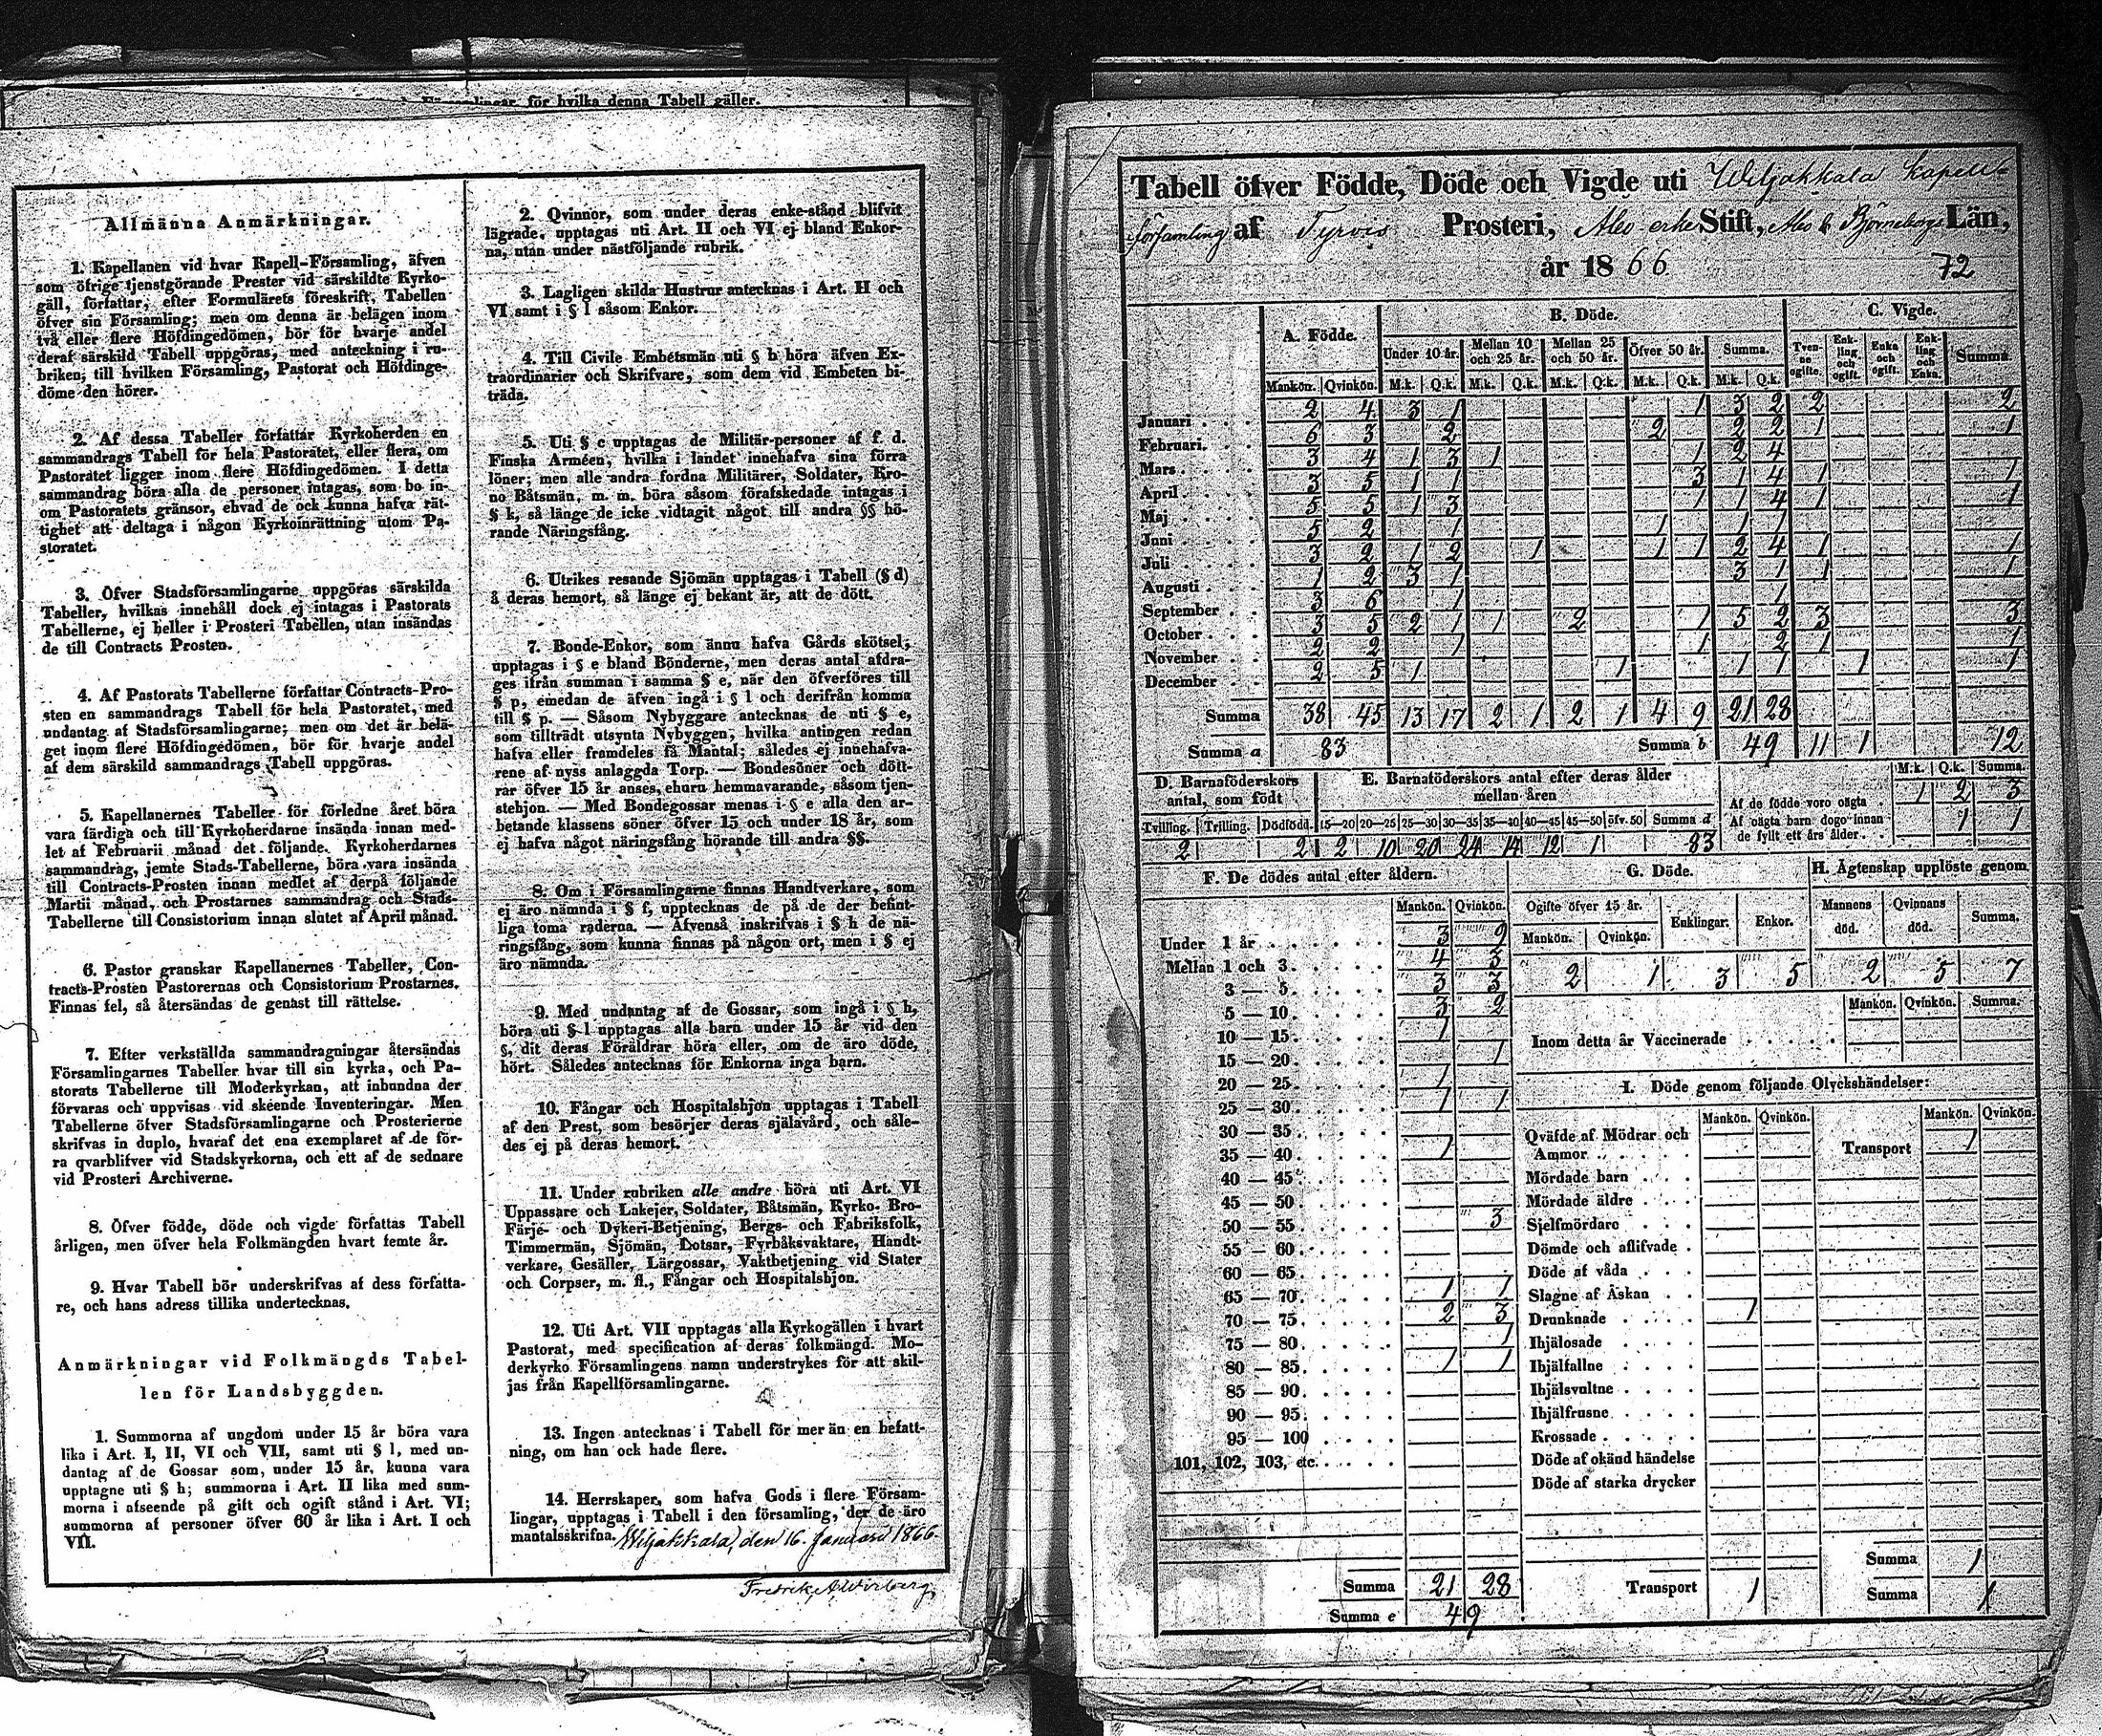 Församlingar, för hvilka denna Tabell gäller.
Allmänna Anmärkningar.
1. Kapellanen vid hvar Kapell-Församling, äfven
som öfrige tjenstgörande Prester vid särskildte Kyrko-
gäll, författar, efter Formulärets föreskrift, Tabellen
öfver sin Församling; men om denna är belägen inom
två eller flere Höfdingedömen, bör för hvarje andel
deraf särskild Tabell uppgöras, med anteckning i ru-
briken, till hvilken Församling, Pastorat och Höfdinge-
döme den hörer.
2. Af dessa Tabeller författar Kyrkoherden en
sammandrags Tabell för hela Pastoratet, eller flera, om
Pastoratet ligger inom flere Höfdingedömen. I detta
sammandrag böra alla de personer intagas, som bo in-
om Pastoratets gränsor, ehvad de ock kunna hafva rät-
tighet att deltaga i någon Kyrkoinrättning utom Pa-
storatet.
3. Öfver Stadsförsamlingarne uppgöras särskilda
Tabeller, hvilkas innehåll dock ej intagas i Pastorats
Tabellerne, ej heller i Prosteri Tabellen, utan insändas
de till Contracts Prosten.
4. Af Pastorats Tabellerne författar Contracts-Pro-
sten en sammandrags Tabell för hela Pastoratet, med
undantag af Stadsförsamlingarne; men om det är belä-
get inom flere Höfdingedömen, bör för hvarje andel
af dem särskild sammandrags Tabell uppgöras.
5. Kapellanernes Tabeller för förledne året böra
vara färdiga och till Kyrkoherdarne insända innan med-
let af Februarii månad det följande. Kyrkoherdarnes
sammandrag, jemte Stads-Tabellerne, böra vara insända
till Contracts-Prosten innan medlet af derpå följande
Martii månad, och Prostarnes sammandrag och Stads-
Tabellerne till Consistorium innan slutet af April månad.
6. Pastor granskar Kapellanernes Tabeller, Con-
tracts-Prosten Pastorernas och Consistorium Prostarnes.
Finnas fel, så återsändas de genast till rättelse.
7. Efter verkställda sammandragningar återsändas
Församlingarnes Tabeller hvar till sin kyrka, och Pa-
storats Tabellerne till Moderkyrkan, att inbundna der
förvaras och uppvisas vid skéende Inventeringar. Men
Tabellerne öfver Stadsförsamlingarne och Prosterierne
skrifvas in duplo, hvaraf det ena exemplaret af de för-
ra qvarblifver vid Stadskyrkorna, och ett af de sednare
vid Prosteri Archiverne.
8. Öfver födde, döde och vigde författas Tabell
årligen, men öfver hela Folkmängden hvart femte år.
9. Hvar Tabell bör underskrifvas af dess författa-
re, och hans adress tillika undertecknas.
Anmärkningar vid Folkmängds Tabel-
len för Landsbyggden.
1. Summorna af ungdom under 15 år böra vara
lika i Art. I, II, VI och VII, samt uti § l, med un-
dantag af de Gossar som, under 15 år, kunna vara
upptagne uti § h; summorna i Art. II lika med sum-
morna i afseende på gift och ogift stånd i Art. VI;
summorna af personer öfver 60 år lika i Art. I och
VII.
2. Qvinnor, som under deras enke-stånd blifvit
lägrade, upptagas uti Art. II och VI ej bland Enkor-
na, utan under nästföljande rubrik.
3. Lagligen skilda Hustrur antecknas i Art. II och
VI samt i § l såsom Enkor.
4. Till Civile Embetsmän uti § b höra äfven Ex-
traordinarier och Skrifvare, som dem vid Embeten bi-
träda.
5. Uti § c upptagas de Militär-personer af f. d.
Finska Arméen, hvilka i landet innehafva sina förra
löner; men alle andra fordna Militärer, Soldater, Kro-
no Båtsmän, m. m. böra såsom förafskedade intagas i
§ k, så länge de icke vidtagit något till andra §§ hö-
rande Näringsfång.
6. Utrikes resande Sjömän upptagas i Tabell (§ d)
å deras hemort, så länge ej bekant är, att de dött.
7. Bonde-Enkor, som ännu hafva Gårds skötsel,
upptagas i § e bland Bönderne, men deras antal afdra-
ges ifrån summan i samma § e, när den öfverföres till
§ p, emedan de äfven ingå i § l och derifrån komma
till § p. — Såsom Nybyggare antecknas de uti § e,
som tillträdt utsynta Nybyggen, hvilka antingen redan
hafva eller framdeles få Mantal; således ej innehafva-
rene af nyss anlaggda Torp. — Bondesöner och dött-
rar öfver 15 år anses, ehuru hemmavarande, såsom tjen-
stehjon. — Med Bondegossar menas i § e alla den ar-
betande klassens söner öfver 15 och under 18 år, som
ej hafva något näringsfång hörande till andra §§.
8. Om i Församlingarne finnas Handtverkare, som
ej äro nämnda i § f, upptecknas de på de der befint-
liga toma raderna. — Äfvenså inskrifvas i § h de nä-
ringsfång, som kunna finnas på någon ort, men i § ej
äro nämnda.
9. Med undantag af de Gossar, som ingå i § h,
böra uti § l upptagas alla barn under 15 år vid den
§, dit deras Föräldrar höra eller, om de äro döde,
hört. Således antecknas för Enkorna inga barn.
10. Fångar och Hospitalshjon upptagas i Tabell
af den Prest, som besörjer deras själavård, och såle-
des ej på deras hemort.
11. Under rubriken alle andre böra uti Art. VI
Uppassare och Lakejer, Soldater, Båtsmän, Kyrko- Bro-
Färje- och Dykeri-Betjening, Bergs- och Fabriksfolk,
Timmermän, Sjömän, Lotsar, Fyrbåksvaktare, Handt-
verkare, Gesäller, Lärgossar, Vaktbetjening vid Stater
och Corpser, m. fl., Fångar och Hospitalshjon.
12. Uti Art. VII upptagas alla Kyrkogällen i hvart
Pastorat, med specification af deras folkmängd. Mo-
derkyrko Församlingens namn understrykes för att skil-
jas från Kapellförsamlingarne.
13. Ingen antecknas i Tabell för mer än en befatt-
ning, om han ock hade flere.
14. Herrskaper, som hafva Gods i flere Försam-
lingar, upptagas i Tabell i den församling, der de äro
mantalsskrifna. Wiljakkala, den 16. Januari 1866.
Fredrik A
Tabell öfver Födde, Döde och Vigde uti Wiljakkala Kapell-
församling af Tyrvis Prosteri, Åbo erke Stift, Åbo & Björneborgs Län,
år 1866 72
A. Födde. B. Döde. C. Vigde.
Under 10 år. Mellan 10 och 25 år. Mellan 25 och 50 år. Öfver 50 år. Summa. Tven-ne ogifte. Enk-ling och ogift. Enka och ogift. Enk-ling och Enka. Summa
Mankön. Qvinkön. M.k. Q.k. M.k. Q.k. M.k. Q.k. M.k. Q.k. M.k. Q.k.
Januari 2 4 3 1 1 3 2 2 2
Februari. 6 3 2 2 2 2 1 1
Mars 3 4 1 3 1 1 2 4
April 3 5 1 1 3 1 4 1 1
Maj 5 5 1 3 1 1 4 1 1
Juni 5 2 1 1 1 1
Juli 3 2 1 2 1 1 1 2 4 1 1
Augusti 1 2 3 1 3 1 1 1
September 3 6 1 1
October 3 5 2 1 1 2 1 5 2 3 3
November 2 2 1 1 2 1 1
December 2 5 1 1 1 1 1 1
Summa 38 45 13 17 2 1 2 1 4 9 21 28
Summa a 83 Summa b 49 11 1 12
D. Barnaföderskors antal, som födt
Tvilling. Trilling. Dödfödd.
2 2
E. Barnaföderskors antal efter deras ålder
mellan åren
15—20 20—25 25—30 30—35 35—40 40—45 45—50 öfv. 50 Summa d
2 10 20 24 14 12 1 83
M.k. Q.k. Summa.
Af de födde voro oägta 1 2 3
Af oägta barn dogo innan
de fyllt ett års ålder 1 1
F. De dödes antal efter åldern.
Mankön. Qvinkön.
Under 1 år 3 9
Mellan 1 och 3 4 3
3 — 5 3 3
5 — 10 3 2
10 — 15 1
15 — 20 1
20 — 25 1
25 — 30 1 1
30 — 35
35 — 40 1
40 — 45
45 — 50
50 — 55 3
55 — 60
60 — 65
65 — 70 1 1
70 — 75 2 3
75 — 80 1
80 — 85 1 1
85 — 90
90 — 95
95 — 100
101, 102, 103, etc.
Summa 21 28
Summa e 49
G. Döde.
Ogifte öfver 15 år. Enklingar. Enkor.
Mankön. Qvinkön.
2 1 3 5
H. Ägtenskap upplöste genom
Mannens död. Qvinnans död. Summa.
2 5 7
Mankön. Qvinkön. Summa.
Inom detta år Vaccinerade
I. Döde genom följande Olyckshändelser:
Mankön. Qvinkön. Mankön. Qvinkön.
Qväfde af Mödrar och
Ammor
Transport 1
Mördade barn
Mördade äldre
Sjelfmördare
Dömde och aflifvade
Döde af våda
Slagne af Åskan
Drunknade 1
Ihjälosade
Ihjälfallne
Ihjälsvultne
Ihjälfrusne
Krossade
Döde af okänd händelse
Döde af starka drycker
Summa 1
Transport 1 Summa 1